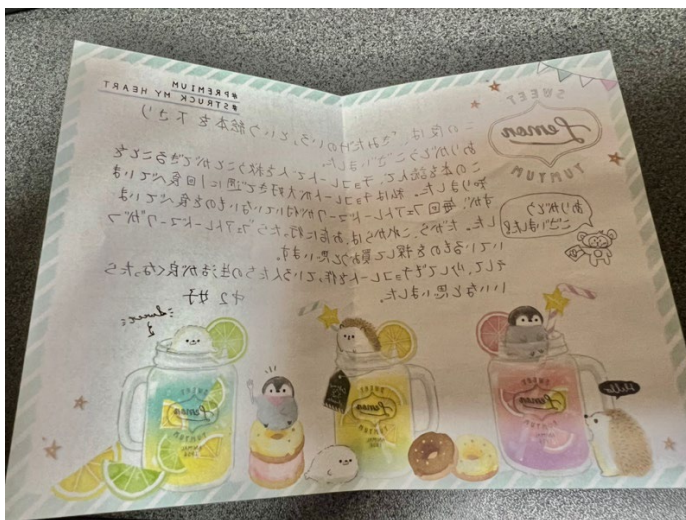 SWEET
Lemon
YUMYUM
#PREMIUM
#STRUCK MY HEART
この度は、という絵本を下さり
ありがとうございました。
この本を読んで、チョコレートで人を救うことができることを
知りました。私はチョコレートが大好きで週に1回食べていま
すが、毎回フェアトレードマークが付いていないものを食べていま
した。だから、これからは、お店に行ったら"フェアトレードマーク"がつ
いているものを探して買おうと思います。
そして、少しでもチョコレートを作っている人たちの生活が良くなったら
いいなと思いました。
中2 女子
ありがとう
ございました!
Hello
SWEET
Lemon
YUMYUM
SWEET
Lemon
YUMYUM
SWEET
Lemon
YUMYUM